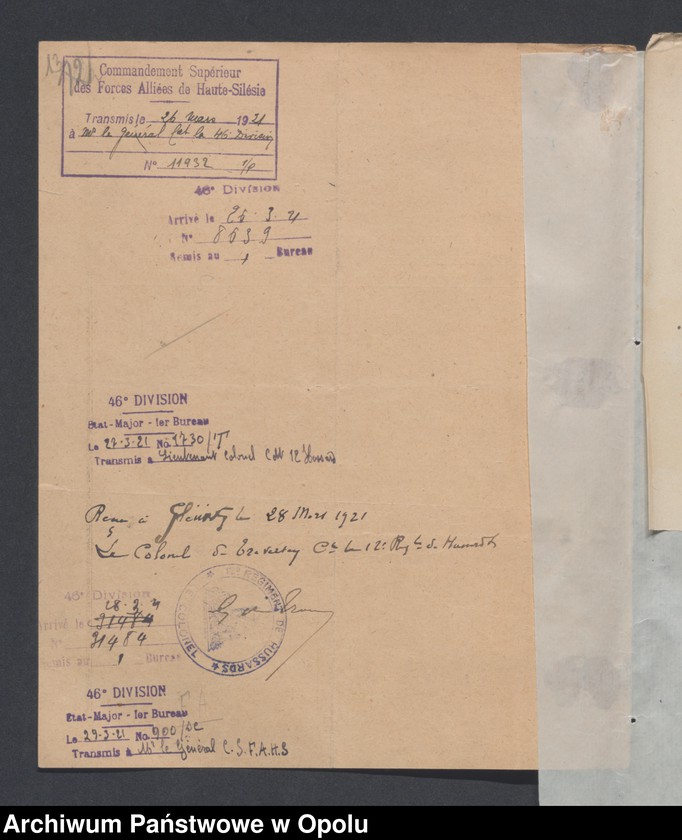 Commandement Supérieur
des Forces Alliées de Haute-Silésie
Transmis le 26 mars 1921
à Mr le Général Cdt la 46e Division
No 11932
46e Division
Arrivé le 3 21
No 8539
Remis au 1 Bureau
46e DIVISION
Etat-Major - 1er Bureau
Le 27-3-21 No 3730/T
Transmis à Lieutenant Colonel Cdt 12e Hussards
à le 28 Mars 1921
Le Colonel de Ct le 12e Rgt de Hussards
12e REGIMENT DE HUSSARDS
LE COLONEL
46e Division
Arrivé le 28.3.21
31484
No 31484
Remis au 1 Bureau
46e DIVISION
Etat-Major - 1er Bureau
Le 29-3-21 No 900/
Transmis à Mr le Général C.S.F.A.H.S
Archiwum Państwowe w Opolu